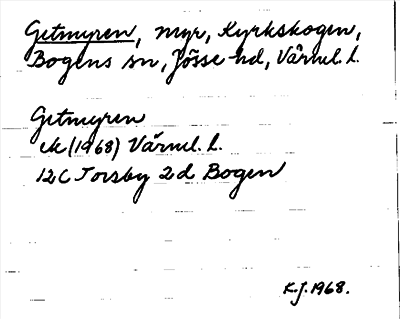 Getmyren, myr, Kyrkskogen,
Bogens sn, Jösse hd, Värml. l.
Getmyren
ek (1968) Värml. l.
12C Torsby 2d Bogen
K.J. 1968.